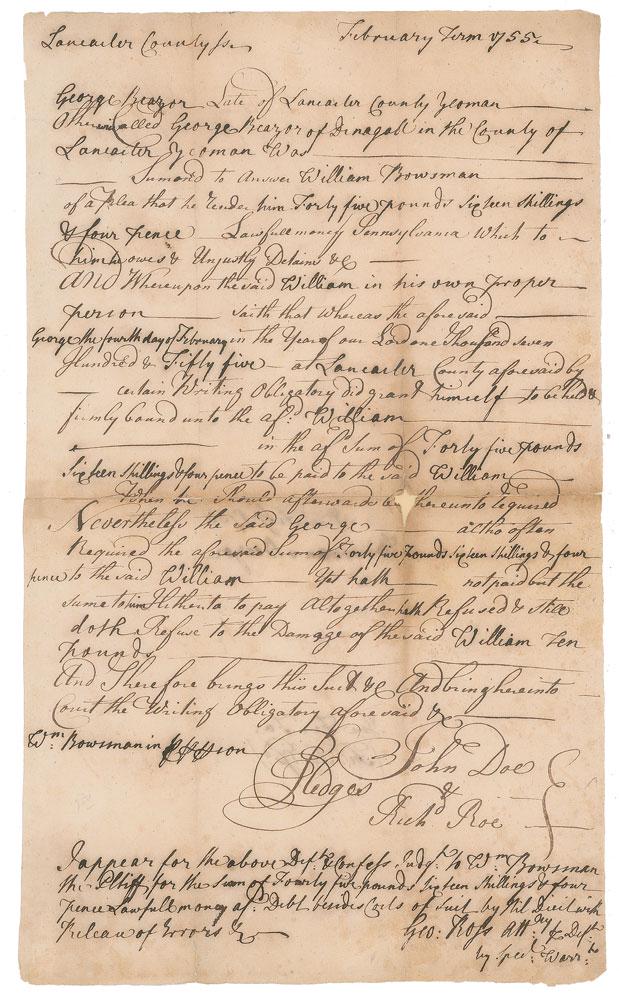 Lancaster County ss. February Term 1755
George Beazor Late of Lancaster County Yeoman
Otherwise called George Beazor of Dinagall in the County of
Lancaster Yeoman Was
Sumond to Answer William Bowsman
of a Plea that he Render him Forty five pounds Sixteen shillings
& four pence Lawfull money Pennsylvania Which to
him he owes & Unjustly Detains &c
And Whereupon the said William in his own proper
person saith that whereas the aforesaid
George the fourth day of February in the Year of our Lord one Thousand seven
Hundred & Fifty five at Lancaster County aforesaid by
certain Writing Obligatory did grant himself to be held &
firmly bound unto the afd. William
in the afd. Sum of Forty five pounds
Sixteen shillings & four pence to be paid to the said William
When he Should afterwards be thereunto required
Nevertheless the Said George altho often
Required the aforesaid Sum of Forty five pounds sixteen Shillings & four
pence to the said William Yet hath not paid but the
same to him Hitherto to pay Altogether hath Refused & Still
doth Refuse to the Damage of the said William Ten
pounds
And Therefore brings this Suit &c And bring here into
Court the Writing Obligatory aforesaid &c
Wm. Bowsman in person
Pledges John Doe
&
Richd. Roe
I appear for the above Deft. & Confess Judgt. to Wm. Bowsman
the Pltiff for the sum of Fourty five pounds Sixteen Shillings & four
pence Lawfull money afd. Debt besides Costs of Suit by Nil Dicit with
Release of Errors &c
Geo: Ross Attey. for Deft.
by spec. Warrt.